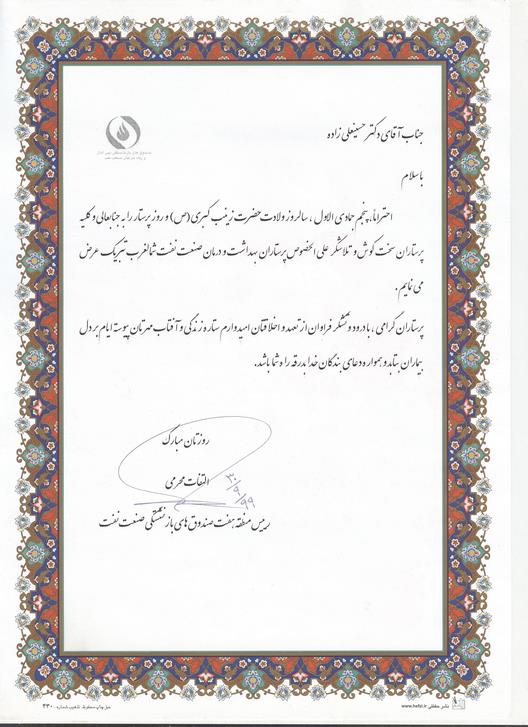 صندوق های بازنشستگی، پس انداز
و رفاه کارکنان صنعت نفت
جناب آقای دکتر حسینعلی زاده
باسلام
احتراماً، پنجم جمادی الاول، سالروز ولادت حضرت زینب کبری (س) و روز پرستار را به جنابعالی و کلیه
پرستاران سخت کوش و تلاشگر علی الخصوص پرستاران بهداشت و درمان صنعت نفت شمالغرب تبریک عرض
می نمایم.
پرستاران گرامی، با درود و تشکر فراوان از تعهد و اخلاقتان امیدوارم ستاره زندگی و آفتاب مهرتان پیوسته ایام بر دل
بیماران بتابد و همواره دعای بندگان خدا بدرقه راه شما باشد.
روزتان مبارک
التفات محرمی
۳۰/۹/۹۹
رییس منطقه هفت صندوق های بازنشستگی صنعت نفت
نشر حفظی www.hefzi.ir
حق چاپ محفوظ. تذهیب شماره: ۴۳۰